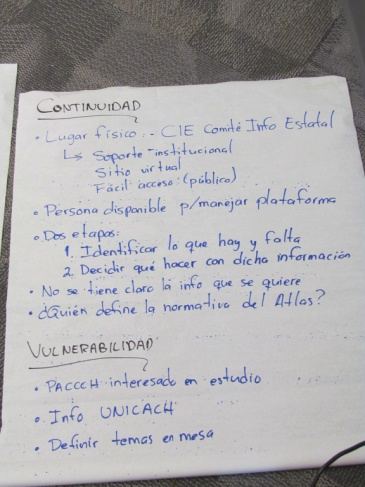 CONTINUIDAD
• Lugar físico :- CIE Comité Info Estatal
↳ Soporte institucional
Sitio virtual
Fácil acceso: (público)
• Persona disponible p/manejar plataforma
• Dos etapas:
1. Identificar lo que hay y falta
2. Decidir qué hacer con dicha información
• No se tiene claro la info que se quiere
• ¿Quién define la normativa del Atlas?
VULNERABILIDAD
• PACCCH interesado en estudio
• Info UNICACH
• Definir temas en mesa